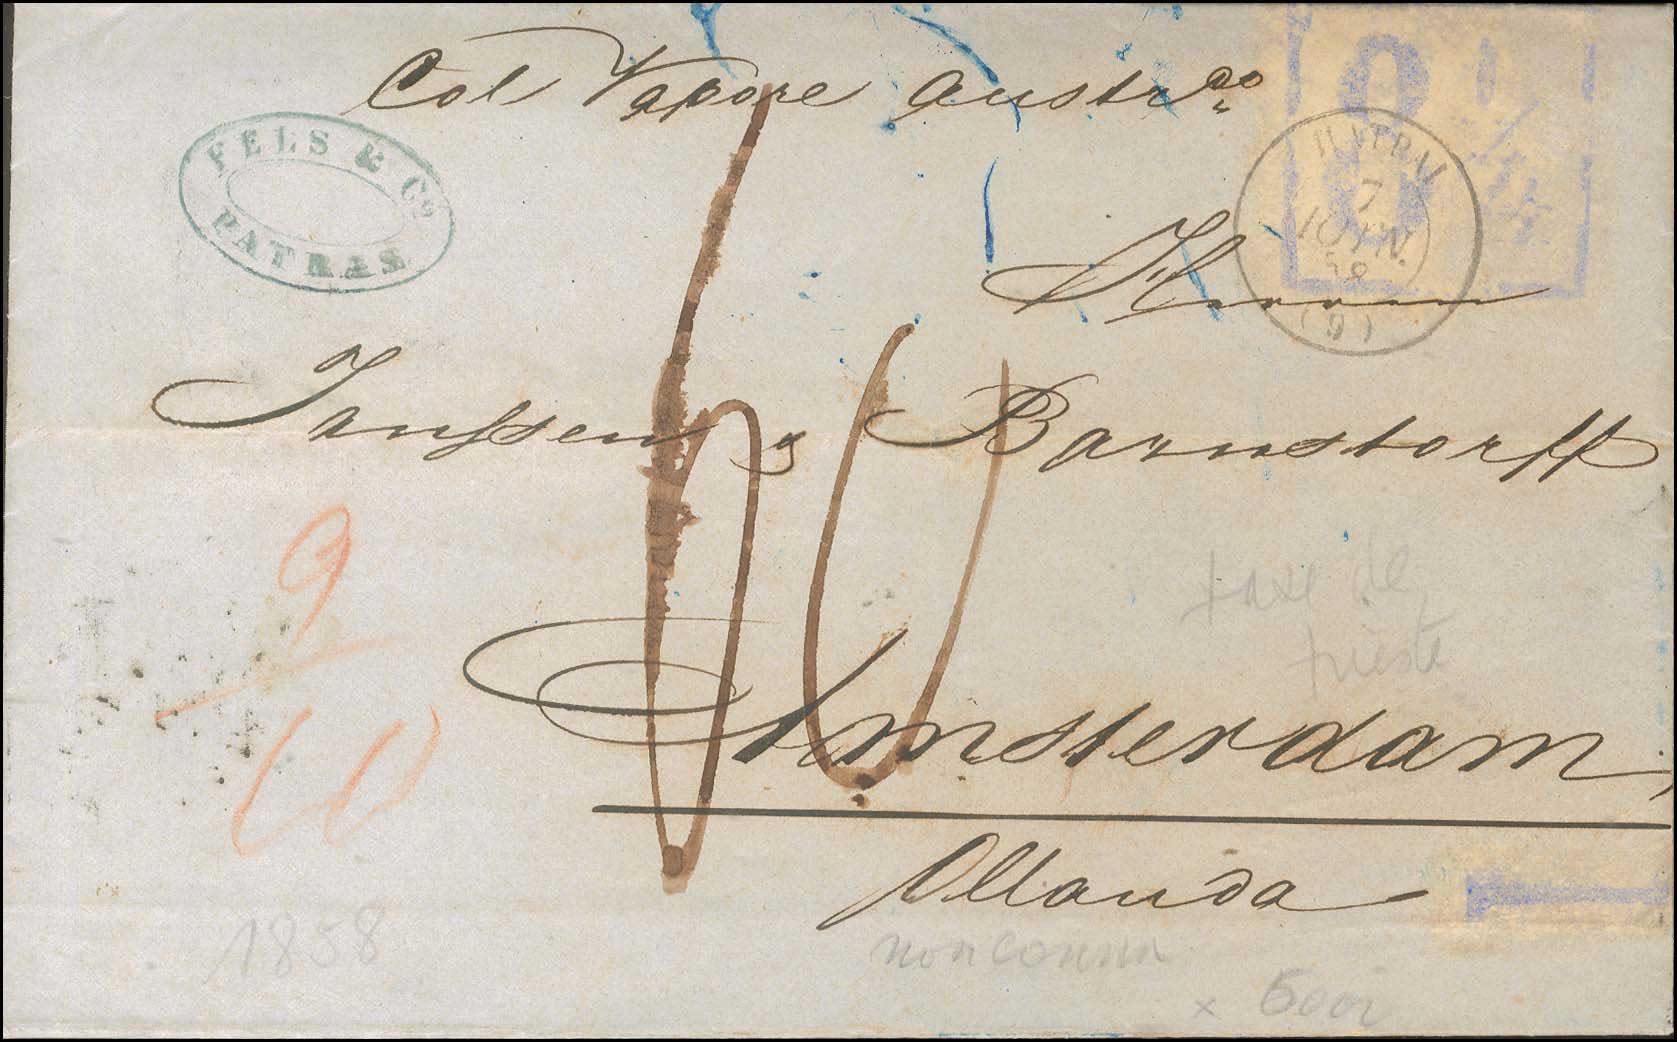 Col Vapore Austr.co
FELS & Co
PATRAS
ΠΑΤΡΑΙ
7
ΙΟΥΝ.
58
(9)
Herren
Janssen & Barnstorff
9
10
60
taxe de
trieste
Amsterdam,
Ollanda
1858
non connu